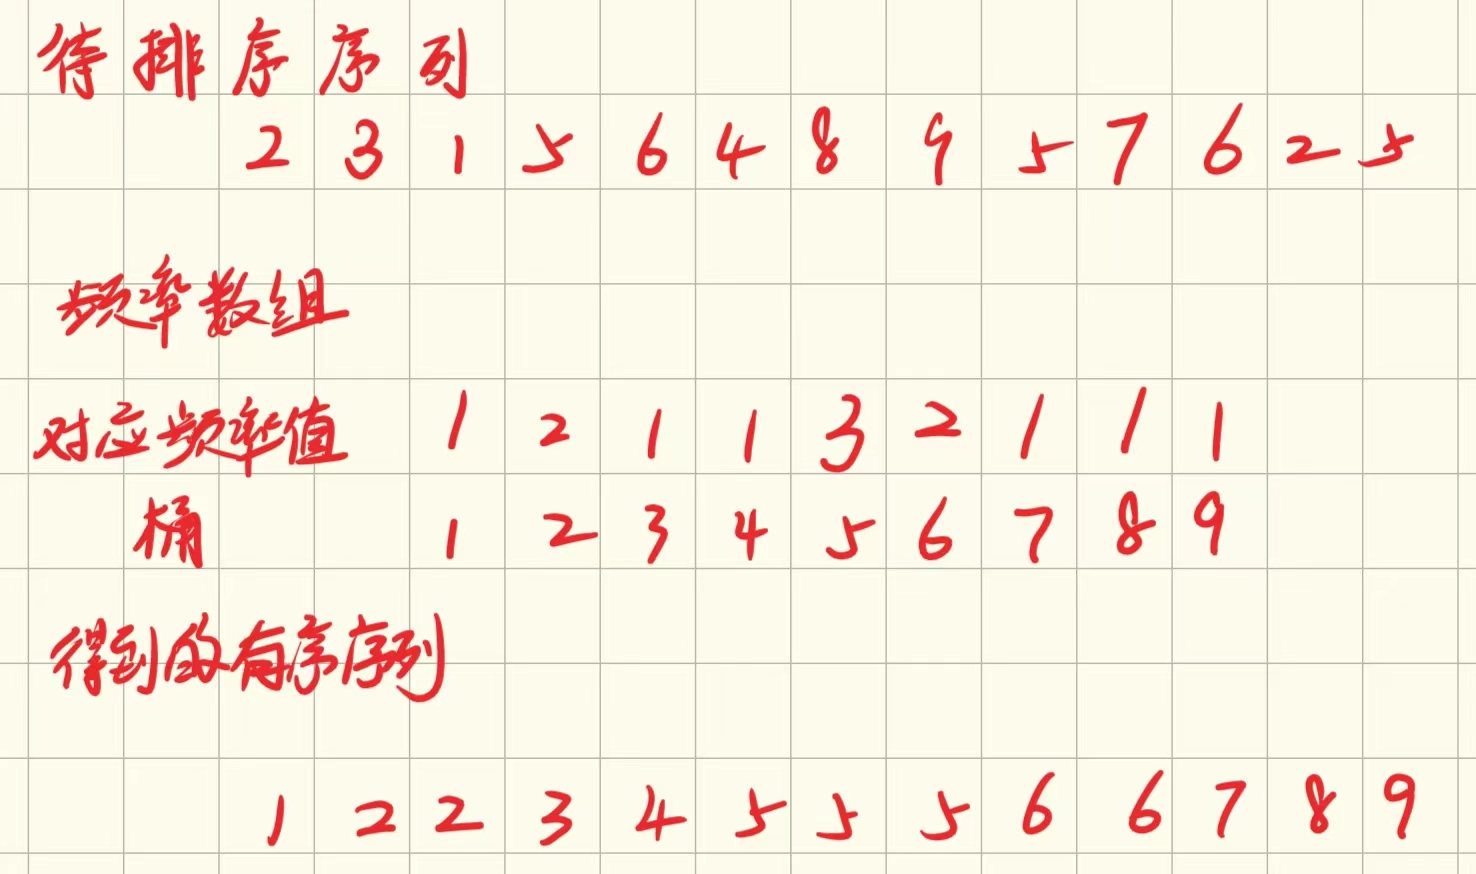 待排序序列
2 3 1 5 6 4 8 9 5 7 6 2 5
频率数组
对应频率值 1 2 1 1 3 2 1 1 1
桶 1 2 3 4 5 6 7 8 9
得到的有序序列
1 2 2 3 4 5 5 5 6 6 7 8 9